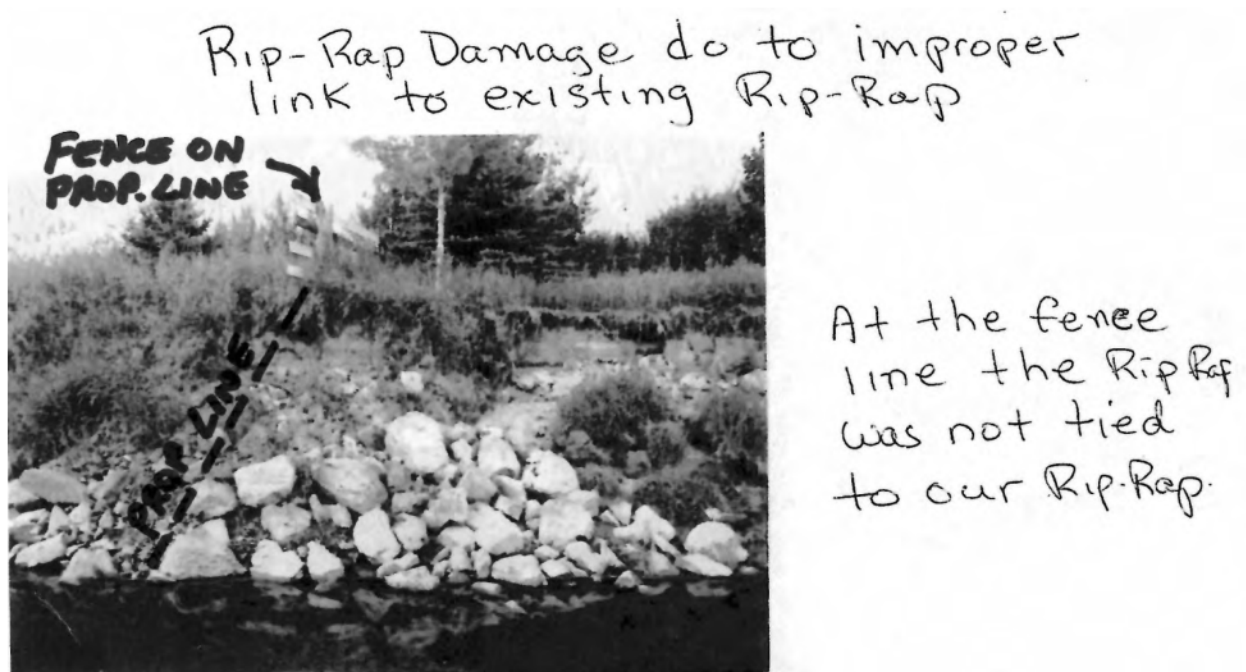 Rip-Rap Damage do to improper
link to existing Rip-Rap
FENCE ON
PROP. LINE
PROP LINE
At the fence
line the Rip Rap
was not tied
to our Rip-Rap.